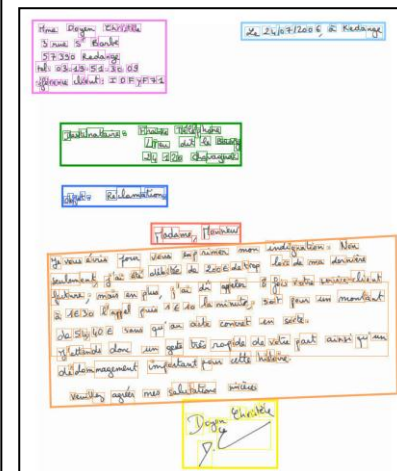 Mme Doyen Christèle
3 rue Ste Barbe
57390 Redange
tel: 03.13.51.30.09
référence client: IDFYF71
Le 24/07/2006, à Redange
Destinataire:
objet: Réclamation
Madame, Monsieur
Je vous écris pour vous exprimer mon indignation. Non
seulement, j'ai été débitée de 200€ de trop lors de ma dernière
facture, mais en plus, j'ai dû appeler 8 fois votre service client
à 1€30 l'appel puis 1€ la minute, soit pour un montant
de 54,40€ sans qu'un acte concret en sorte.
J'attends donc un geste très rapide de votre part ainsi qu'un
dédommagement important pour cette histoire.
veuillez agréer mes salutations sincères
Doyen Christèle